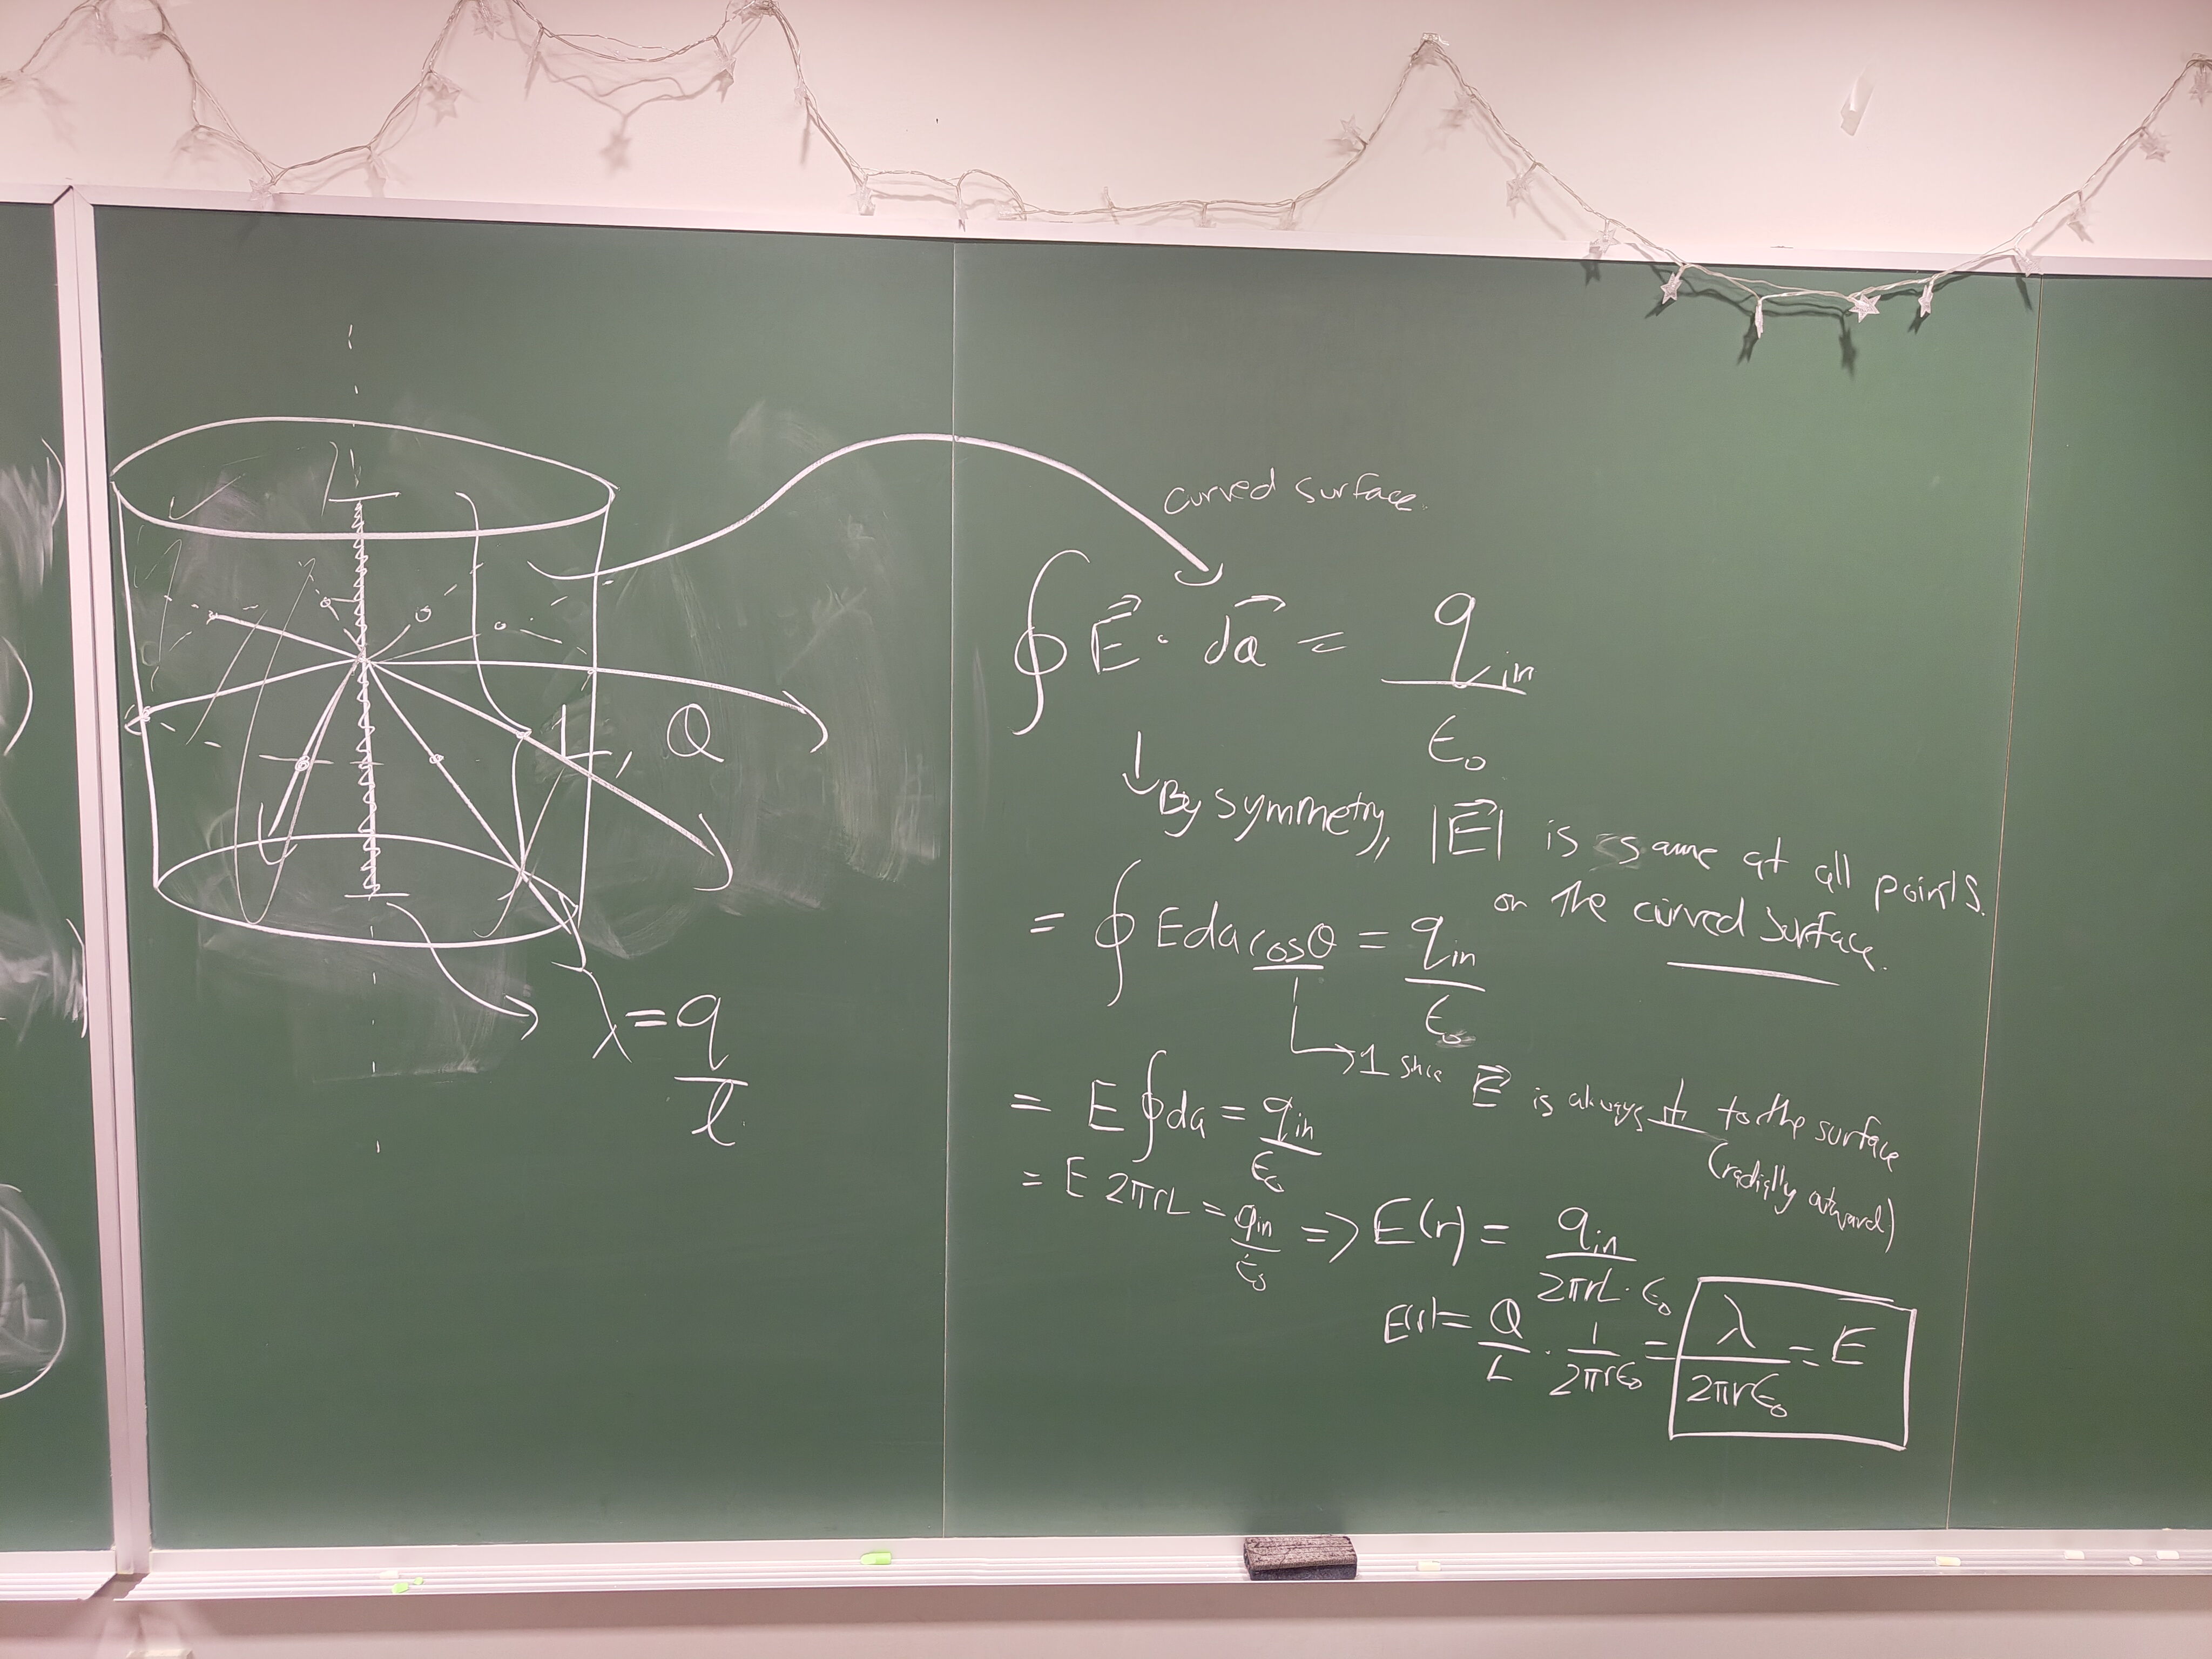 L, Q
λ = q/l
curved surface
∮ E⃗ · da⃗ = q_in/ε₀
↓ By symmetry, |E⃗| is same at all points.
on the curved surface.
= ∮ E da cosθ = q_in/ε₀
→ 1 since E⃗ is always ⊥ to the surface
(radially outward)
= E ∮ da = q_in/ε₀
= E 2πrL = q_in/ε₀ => E(r) = q_in/2πrL · ε₀
E(r) = Q/L · 1/2πrε₀ = λ/2πrε₀ = E